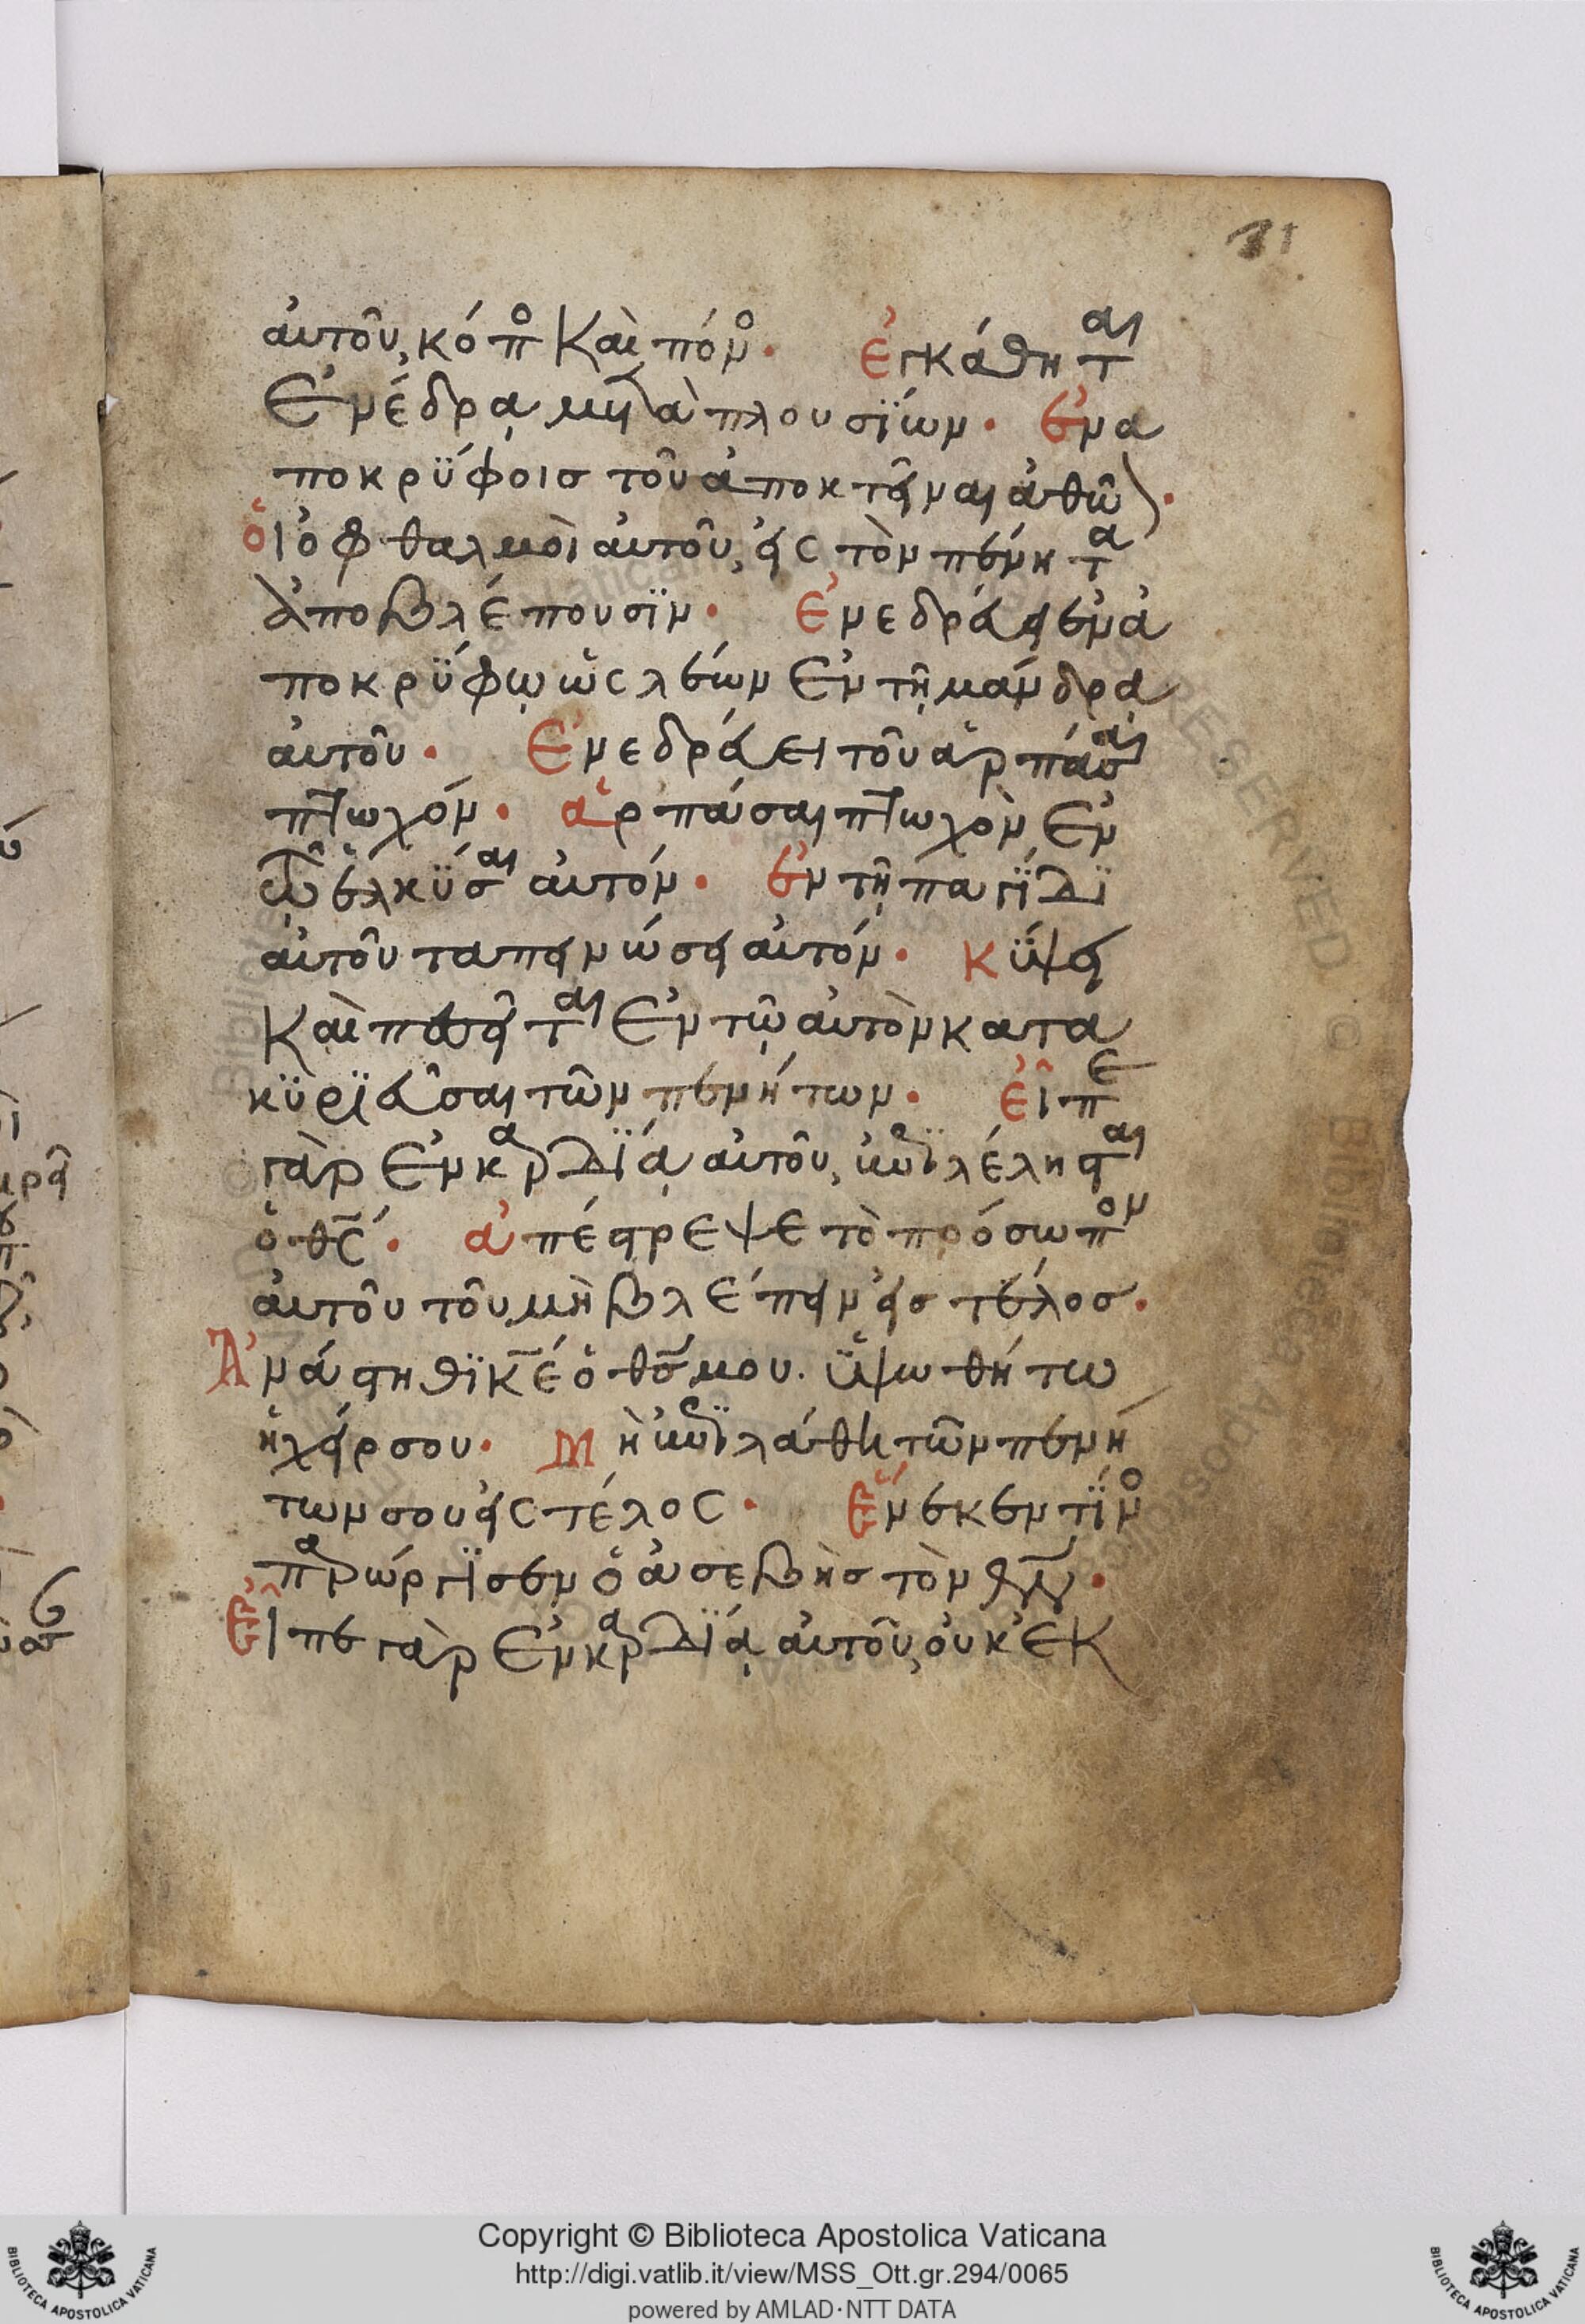 31
αὐτοῦ, κόπο Καὶ πόνο· ἐγκάθηται
Ἐνέδρα μετὰ πλουσΐων· ἐνα
ποκρΰφοισ τοῦ ἀποκτεῖναι ἀθῶ)·
ὁι ὀφθαλμοὶ αὐτοῦ, εἰς τὸν πένητα
ἀποβλέπουσϊν· Ἐνεδράει ἐν ἀ
ποκρΰφω ὡς λέων Ἐν τῆ μάνδρα
αὐτοῦ· Ἐνεδράει τοῦ ἁρπάσαι
πτωχόν· ἁρπάσαι πτωχὸν Ἐν
τῶ ἑλκΰσαι αὐτόν· ἐν τῆ παγΐδϊ
αὐτοῦ ταπεινώσει αὐτόν· κΰψει
Καὶ πεσεῖται Ἐν τῶ αὐτὸν κατα
κϋρϊεῦσαι τῶν πενήτων· εἶπε
γὰρ Ἐν καρδΐα αὐτοῦ, ἐπιλέλησται
ὁ θς· ἀπέστρεψε τὸ πρόσωπον
αὐτοῦ τοῦ μὴ βλέπειν εἰσ τέλοσ·
Ἀνάστηθϊ κε ὁ θσ μου. ὑψωθήτω
ἡ χείρ σου· Μὴ ἐπιλάθη τῶν πενή
των σου εἰς τέλος· Ἕνεκεν τΐνο
παρώργισεν ὁ ἀσεβὴσ τὸν θν·
Εἶπε γὰρ Ἐν καρδΐα αὐτοῦ, οὐκ ἐκ
Copyright © Biblioteca Apostolica Vaticana
http://digi.vatlib.it/view/MSS_Ott.gr.294/0065
powered by AMLAD·NTT DATA
BIBLIOTECA APOSTOLICA VATICANA
BIBLIOTECA APOSTOLICA VATICANA